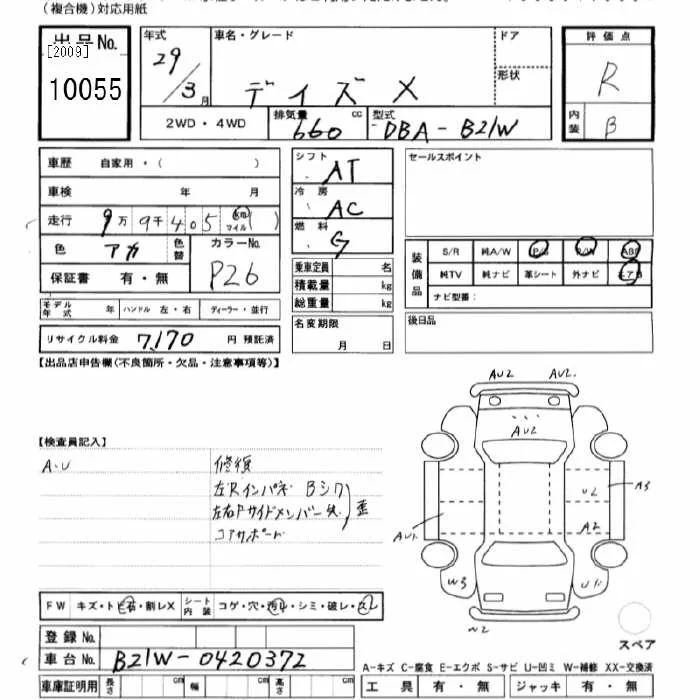 (複合機)対応用紙
出品No.
[2009]
10055
年式
29/3月
車名・グレード
デイズ X
ドア
形状
評価点
R
内装
B
2WD・4WD
排気量
660
cc
型式
DBA-B21W
車歴 自家用・( )
車検 年 月
走行 9万9千405 km マイル ( )
色 アカ
色替
カラーNo.
P26
保証書 有・無
モデル年式 年 ハンドル 左・右 ディーラー・並行
リサイクル料金 7,170 円 預託済
シフト
AT
冷房
AC
燃料
G
乗車定員 名
積載量 kg
総重量 kg
名変期限
月 日
セールスポイント
装備品
S/R 純A/W P/S P/W ABS
純TV 純ナビ 革シート 外ナビ エアB
ナビ型番:
後日品
【出品店申告欄(不良箇所・欠品・注意事項等)】
【検査員記入】
A・U
修復
左Rインパネ Bシワ
左右Fサイドメンバー
コアサポート
歪
AU2 AU2.
AU2
U2
A3
A2
AU1.
W3
U1
W2
スペア
FW キズ・トビ石・割レX
シート内装 コゲ・穴・汚レ・シミ・破レ・スレ
登録No.
車台No. B21W-0420372
車庫証明用 長さ cm 幅 cm 高さ cm
A-キズ C-腐食 E-エクボ S-サビ U-凹ミ W-補修 XX-交換済
工具 有・無 ジャッキ 有・無